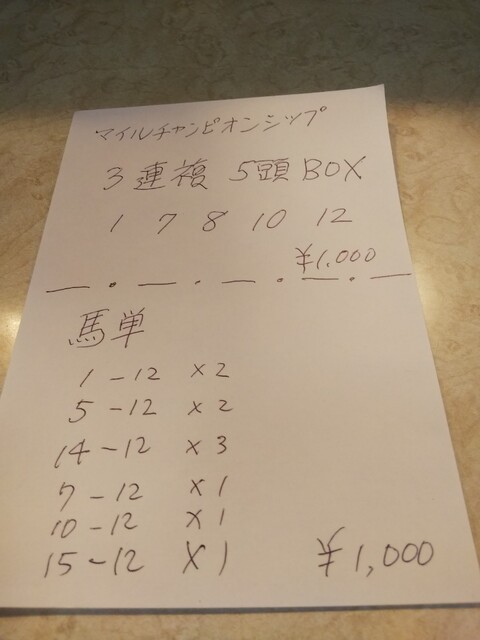 マイルチャンピオンシップ
3連複 5頭BOX
1 7 8 10 12
¥1,000
馬単
1-12 ×2
5-12 ×2
14-12 ×3
7-12 ×1
10-12 ×1
15-12 ×1 ¥1,000